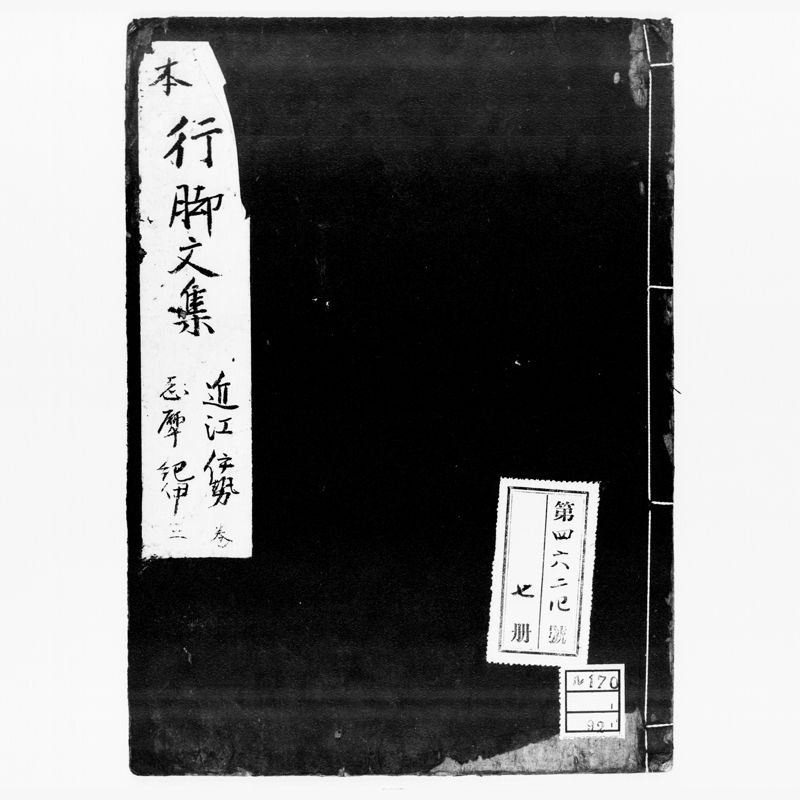 本
行脚文集
近江 伊勢 巻
志摩 紀伊 三
第四六二 號
七册
ル170
1
92